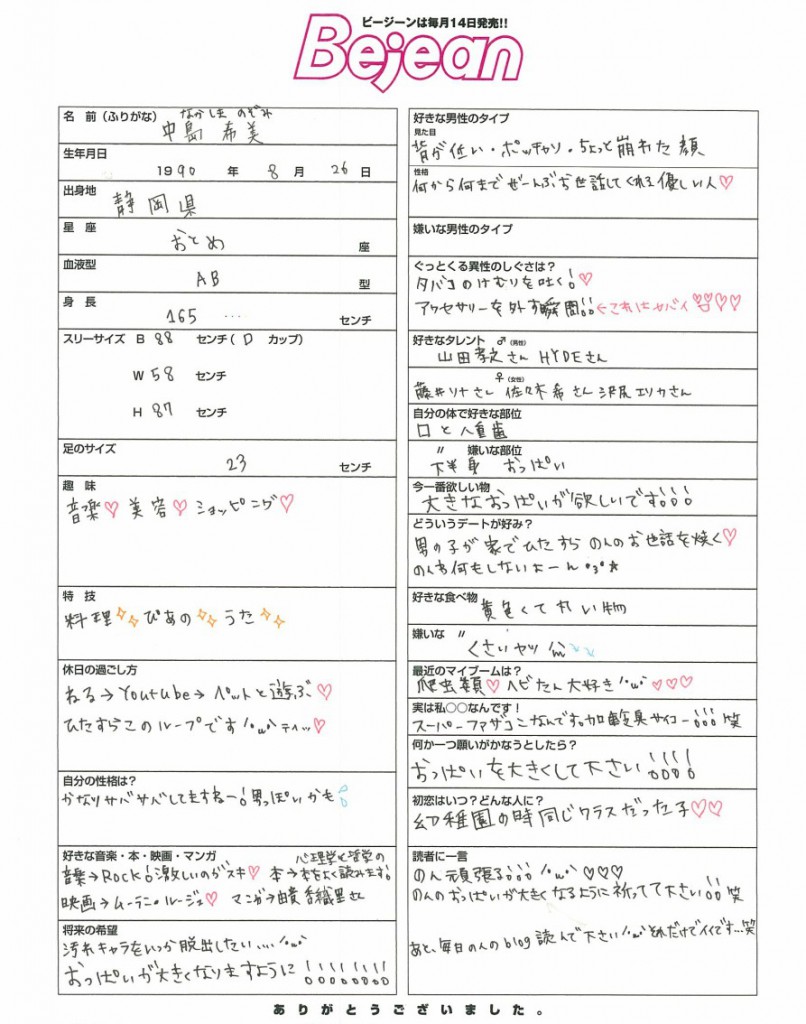 ビージーンは毎月14日発売!!
Bejean
名 前 (ふりがな) なかしま のぞみ
中島 希美
生年月日
1990 年 8 月 26 日
出身地
静岡県
星 座
おとめ 座
血液型
AB 型
身 長
165 ... センチ
スリーサイズ B 88 センチ( D カップ)
W 58 センチ
H 87 センチ
足のサイズ
23 センチ
趣 味
音楽♡ 美容♡ ショッピング♡
特 技
料理 ぴあの うた
休日の過ごし方
ねる→Youtube→ペットと遊ぶ♡
ひたすらこのループです
自分の性格は?
かなりサバサバしてますねー!男っぽいかも
好きな音楽・本・映画・マンガ 心理学や哲学の
音楽→Rock!激しいのがスキ♡ 本→本をよく読みます!
映画→ムーラン・ルージュ♡ マンガ→由貴香織里さん
将来の希望
汚れキャラをいつか脱出したい....
おっぱいが大きくなりますように!!!!!!!!
好きな男性のタイプ
見た目
背が低い・ポッチャリ・ちょっと崩れた顔
性格
何から何までぜーんぶお世話してくれる優しい人♡
嫌いな男性のタイプ
ぐっとくる異性のしぐさは?
タバコのけむりを吐く!♡
アクセサリーを外す瞬間!!←これはヤバイ♡♡♡♡
好きなタレント ♂(男性)
山田孝之さん HYDEさん
♀(女性)
藤井リナさん 佐々木希さん 沢尻エリカさん
自分の体で好きな部位
口と八重歯
〃 嫌いな部位
下半身 おっぱい
今一番欲しい物
大きなおっぱいが欲しいです!!!
どういうデートが好み?
男の子が家でひたすらのんのお世話を焼く♡
のんは何もしないよーん
好きな食べ物
黄色くて丸い物
嫌いな 〃
くさいヤツ
最近のマイブームは?
爬虫類♡ヘビたん大好き ♡♡♡
実は私○○なんです!
スーパーファザコンなんです。加齢臭サイコー!!!笑
何か一つ願いがかなうとしたら?
おっぱいを大きくして下さい!!!!
初恋はいつ?どんな人に?
幼稚園の時同じクラスだった子♡♡
読者に一言
のん頑張る!!! ♡♡♡
のんのおっぱいが大きくなるように祈ってて下さい!!笑
あと、毎日のんのblog読んで下さい それだけでイイです...笑
ありがとうございました。